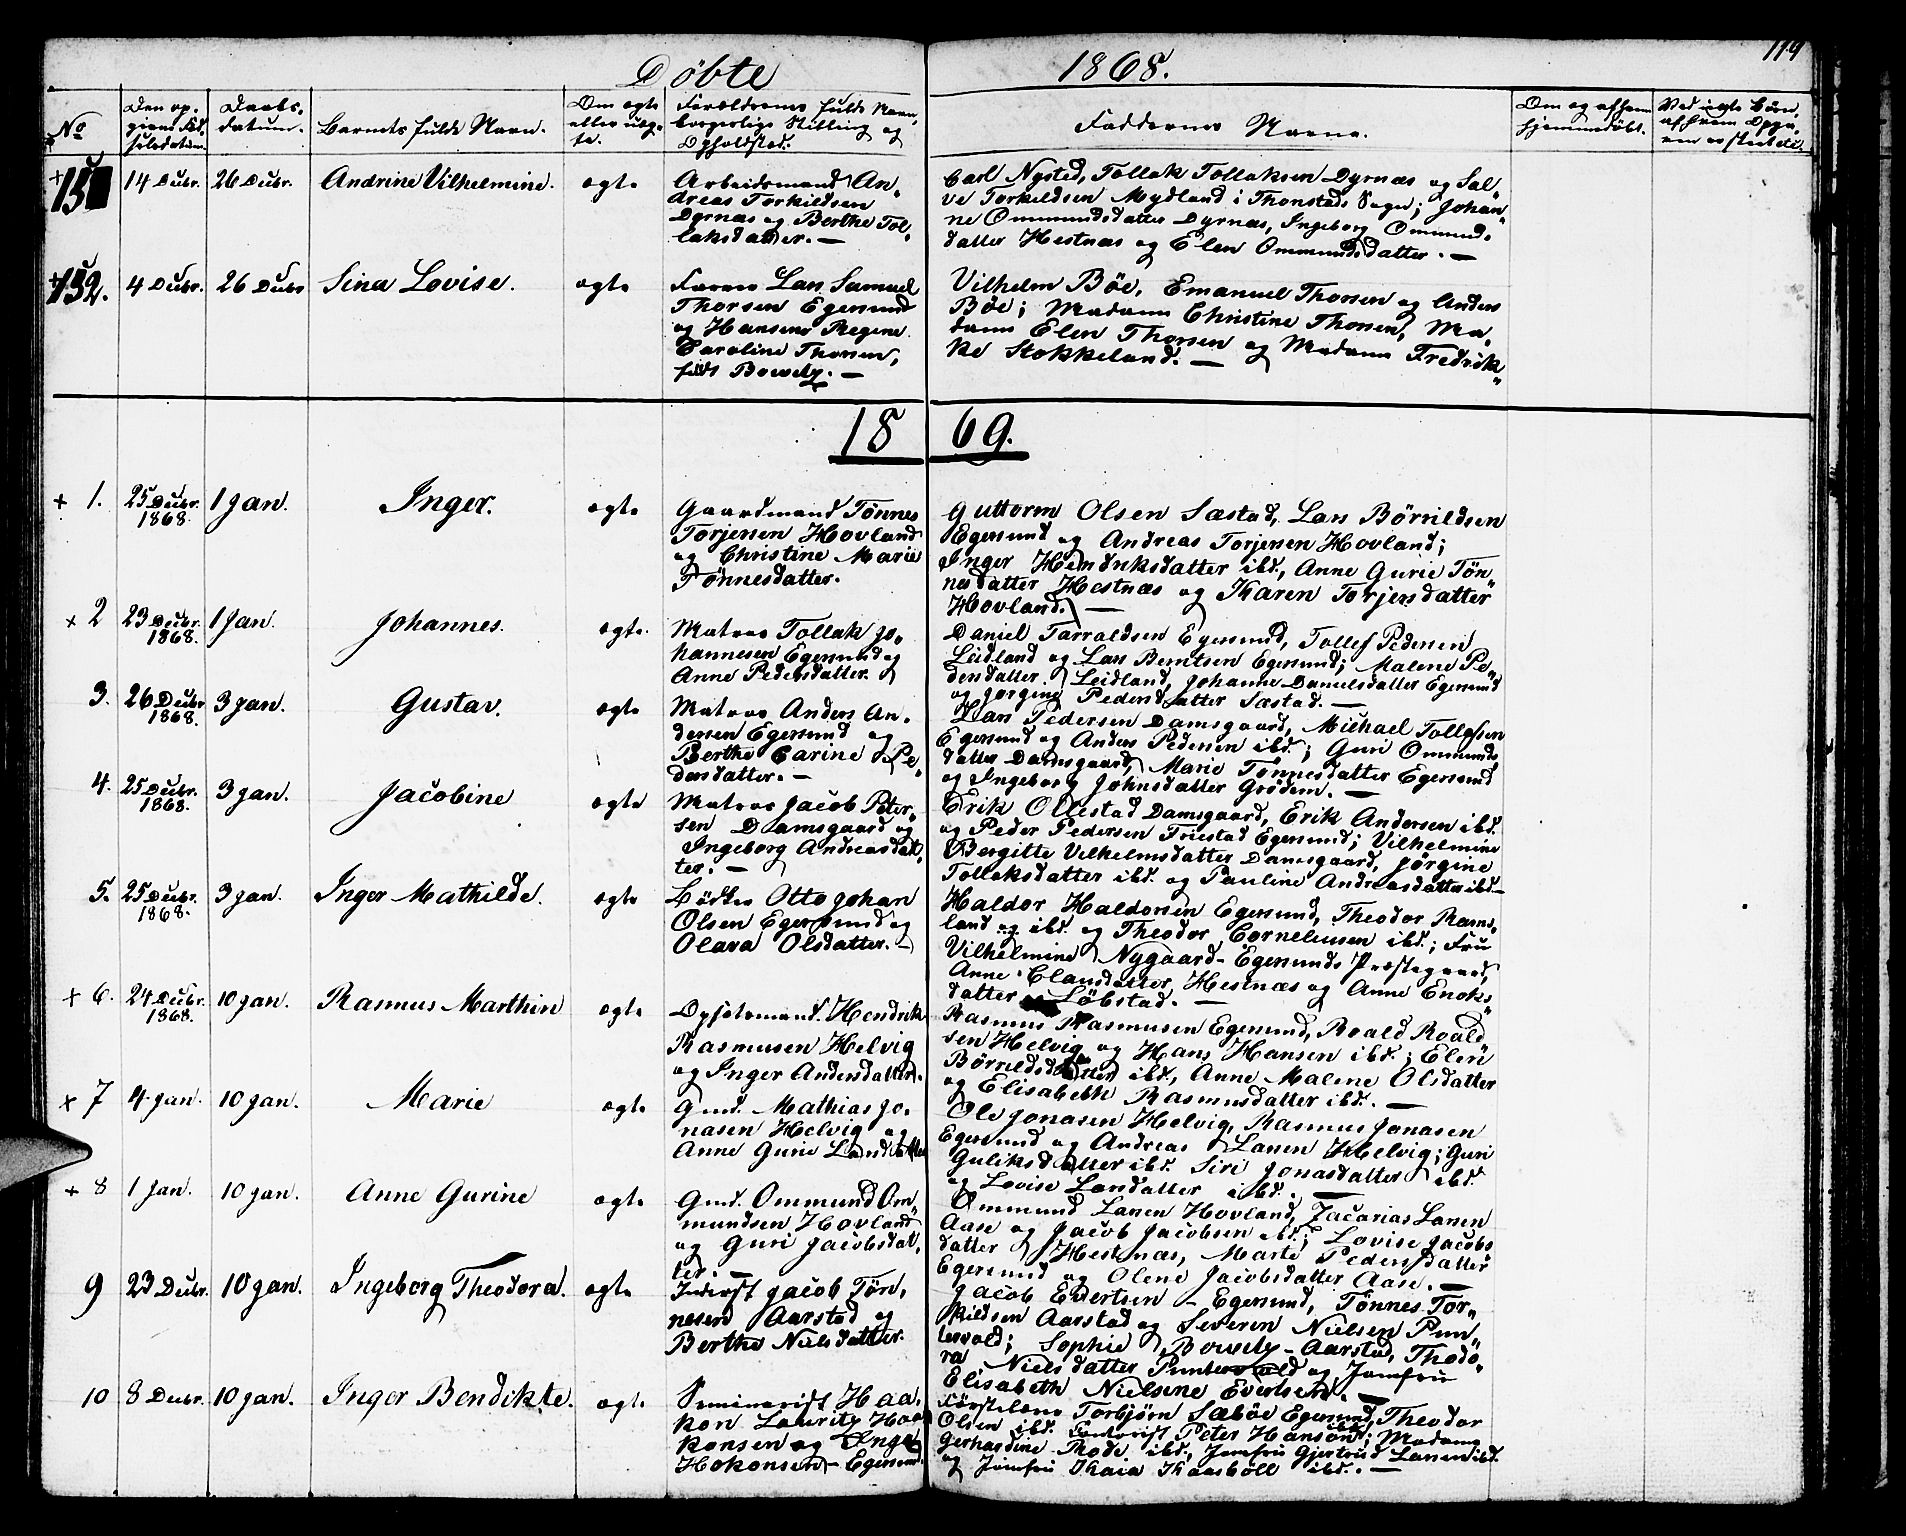 119
Döbte 1868.
No
Den op-
givne Fød-
selsdatum.
Daabs-
datum.
Barnets fulde Navn.
Om ægte
eller uæg-
te.
Forældrenes fulde Navn,
borgerlige Stilling og
Opholdsted.
Faddernes Navne.
Om og af hvem
hjemmedöbt.
Ved uægte Börn,
af hvem Opgi-
ven er skeet
+ 151
14 Dcbr.
26 Dcbr.
Andrine Vilhelmine.
ægte
Arbeidsmand An-
dreas Torkildsen
Dyrnæs og Berthe Tol-
laksdatter. —
Carl Nysted, Tollak Tollaksen Dyrnæs og Sal-
ve Torkildsen Mydland i Thonstads Sogn; Johan-
ne Ommundsdatter Dyrnæs, Ingeborg Ommunds-
datter Hestnæs og Elen Ommundsdatter. —
+ 152.
4 Dcbr.
26 Dcbr
Sina Lovise.
ægte
Farver Lars Samuel
Thorsen Egersund
og Hansine Regine
Caroline Thorsen,
född Bowitz. —
Vilhelm Böe, Emanuel Thorsen og Anders
Böe; Madame Christine Thorsen, Ma-
dame Elen Thorsen og Madame Fredrik-
ke Stokkeland. —
1869.
+ 1.
25 Dcbr.
1868
1 Jan.
Inger.
ægte
Gaardmand Tönnes
Torjersen Hovland
og Christine Marie
Tönnesdatter.
Guttorm Olsen Sæstad, Lars Börrildsen
Egersund og Andreas Torjersen Hovland;
Inger Hendriksdatter ibd., Anne Gurie Tön-
nesdatter Hestnæs og Karen Torjersdatter
Hovland. —
x 2
23 Dcbr.
1868.
1 Jan.
Johannes.
ægte.
Matros Tollak Jo-
hannesen Egersund og
Anne Pedersdatter.
Daniel Tarraldsen Egersund, Tollef Pedersen
Leidland og Lars Berntsen Egersund; Malene Pe-
dersdatter Leidland, Johanne Danielsdatter Egersund
og Jorgine Pedersdatter Sæstad. —
3.
26 Dcbr
1868.
3 Jan.
Gustav.
ægte
Matros Anders An-
dersen Egersund og
Berthe Carine Pe-
dersdatter. —
Lars Pedersen Damsgaard, Michael Tollefsen
Egersund og Anders Pedersen ibd; Guri Ommunds
datter Damsgaard, Marie Tönnesdatter Egersund
og Ingeborg Johnsdatter Grödem. —
4.
25 Dcbr.
1868.
3 Jan.
Jacobine
ægte
Matros Jacob Peter-
sen Damsgaard og
Ingeborg Andreasdat-
ter. —
Erik Ollestad Damsgaard, Erik Andersen ibd.
og Peder Pedersen Friestad Egersund; Vilhelmine
Bergitte Vilhelmsdatter Damsgaard, Jörgine
Tollaksdatter ibd. og Pauline Andreasdatter ibd. —
5.
25 Dcbr.
1868.
3 Jan.
Inger Mathilde.
ægte
Bödker Otto Johan
Olsen Egersund og
Olava Olsdatter. —
Haldor Haldorsen Egersund, Theodor Rams-
land ibd. og Theodor Corneliusen ibd.; Fru
Vilhelmine Nygaard - Egersunds Præstegaard,
Anne Clausdatter Hestnæs og Anne Enoks-
datter Löbstad. —
+ 6.
24 Dcbr.
1868.
10 Jan.
Rasmus Marthin
ægte
Opsidsmand. Hendrik
Rasmusen Helvig
og Inger Andersdatter.
Rasmus Rasmusen Egersund, Roald Roald-
sen Helvig og Hans Hansen ibd.; Elen
Börrildsdatter ibd., Anne Malene Olsdatter
og Elisabeth Rasmusdatter ibd. —
x 7
4 Jan.
10 Jan.
Marie
ægte
Gmd. Mathias Jo-
nasen Helvig og
Anne Gurie Larsdatter
Ole Jonasen Helvig, Rasmus Jonasen
Egersund og Andreas Larsen Helvig; Guri
Guliksdatter ibd. Siri Jonasdatter ibd.
og Lovise Larsdatter ibd. —
+ 8
1 Jan.
10 Jan.
Anne Gurine
ægte
Gmd. Ommund Om-
mundsen Hovland
og Guri Jacobsdat-
ter. —
Ommund Larsen Hovland, Zacarias Larsen
Aase og Jacob Jacobsen ibd; Lovise Jacobs
datter Hestnæs, Marte Pedersdatter
Egersund og Olene Jacobsdatter Aase. —
9
23 Dcbr.
10 Jan.
Ingeborg Theodora.
ægte
Inderst Jacob Tön-
nesen Aarstad og
Berthe Nielsdatter.
Jacob Evertsen - Egersund, Tönnes Tor-
kildsen Aarstad og Severin Nielsen Pun-
tervold; Sophie Bowitz - Aarstad, Theodo-
ra Nielsdatter Puntervold og Jomfru
Elisabeth Nielsine Evertsen. —
10
8 Dcbr.
10 Jan.
Inger Bendikte.
ægte
Seminarist Haa-
kon Lauritz Haa-
konsen og Inger
Hokonsen - Egersund.
Torbjörn Sæböe Egersund, Theodor
Olsen ibd. Peter Hanson ibd; Madame
Gerhardine Thode ibd., Jomfru Gjertrud Larsen ibd.
og Jomfru Kaia Kaasböll ibd. —